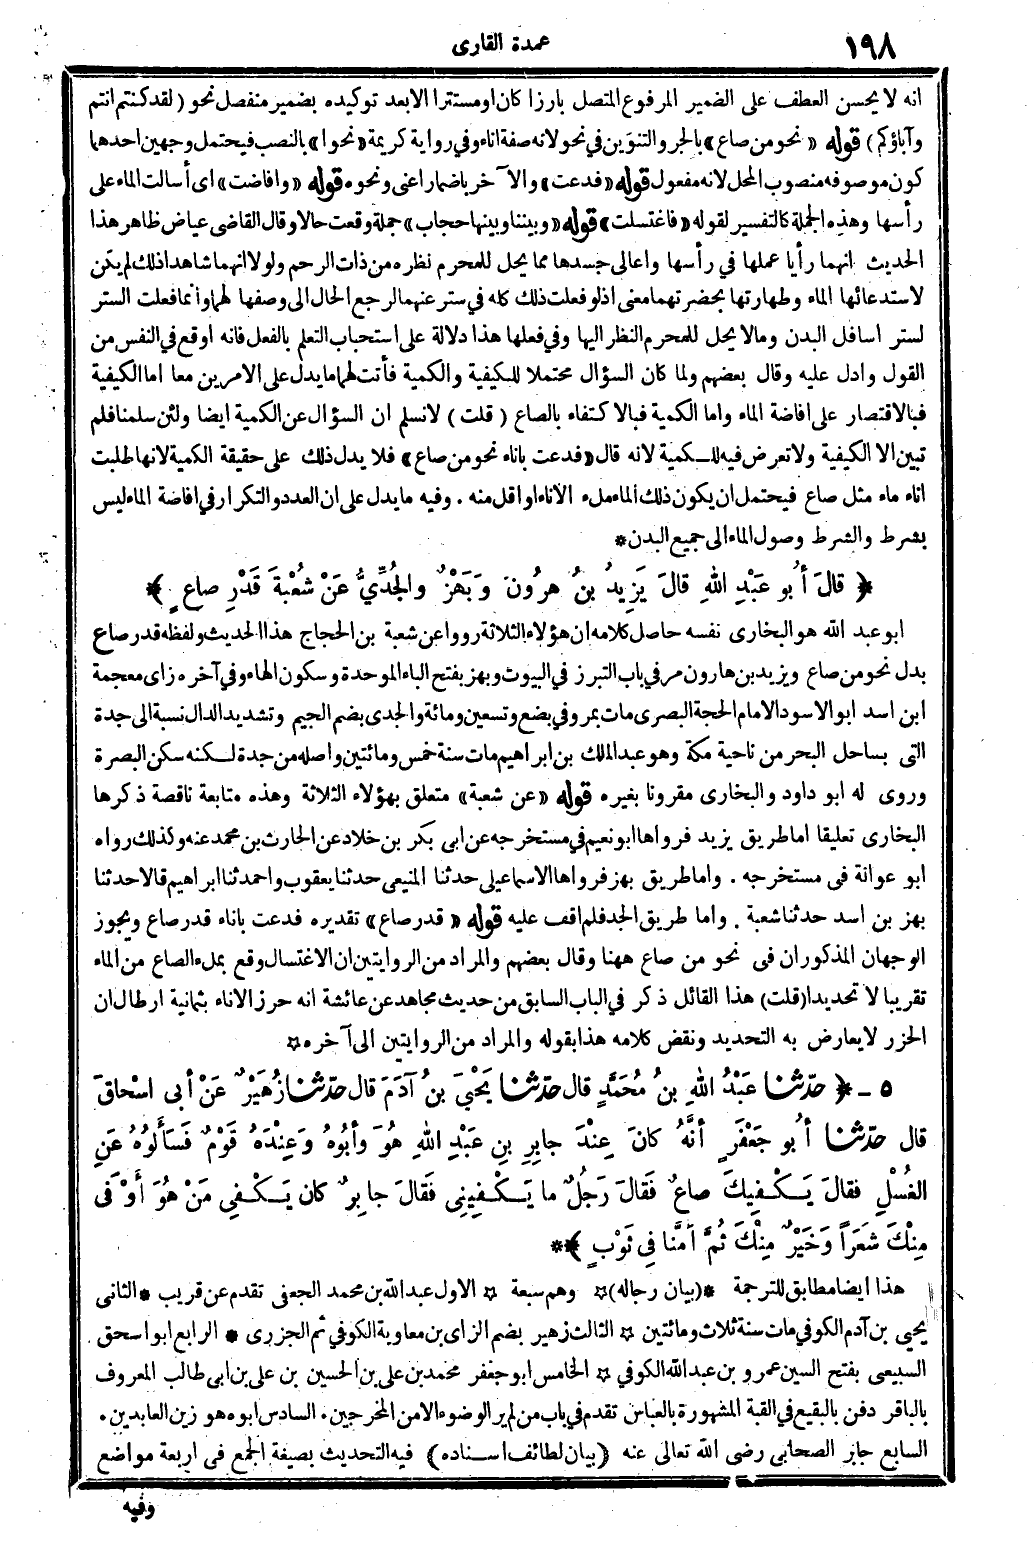 ١٩٨
عمدة القارى
انه لا يحسن العطف على الضمير المرفوع المتصل بارزا كان او مستترا الا بعد توكيده بضمير منفصل نحو ( لقد كنتم انتم
وآباؤكم ) قوله « نحو من صاع » بالجر والتنوين في نحو لانه صفة اناء وفي رواية كريمة « نحوا » بالنصب فيحتمل وجهين احدهما
كون موصوفه منصوب المحل لانه مفعول قوله « فدعت » والآخر باضمار اعنى ونحوه قوله « وافاضت » اى أسالت الماء على
رأسها وهذه الجملة كالتفسير لقوله « فاغتسلت » قوله « وبيننا وبينها حجاب » جملة وقعت حالا وقال القاضى عياض ظاهر هذا
الحديث انهما رأيا عملها في رأسها واعالى جسدها مما يحل للمحرم نظره من ذات الرحم ولولا انهما شاهدا ذلك لم يكن
لاستدعائها الماء وطهارتها بحضرتهما معنى اذ لو فعلت ذلك كله في ستر عنهما لرجع الحال الى وصفها لهما وانما فعلت الستر
لستر اسافل البدن ومالا يحل للمحرم النظر اليها وفي فعلها هذا دلالة على استحباب التعلم بالفعل فانه اوقع في النفس من
القول وادل عليه وقال بعضهم ولما كان السؤال محتملا للكيفية والكمية فأتت لهما ما يدل على الامرين معا اما الكيفية
فبالاقتصار على افاضة الماء واما الكمية فبالاكتفاء بالصاع ( قلت ) لا نسلم ان السؤال عن الكمية ايضا ولئن سلمنا فلم
تبين الا الكيفية ولا تعرض فيه للكمية لانه قال « فدعت باناء نحو من صاع » فلا يدل ذلك على حقيقة الكمية لانها طلبت
اناء ماء مثل صاع فيحتمل ان يكون ذلك الماء ملء الاناء او اقل منه . وفيه ما يدل على ان العدد والتكرار في افاضة الماء ليس
بشرط والشرط وصول الماء الى جميع البدن *
﴿ قالَ أبُو عَبْدِ اللهِ قالَ يَزِيدُ بنُ هرُونَ وَبَهْزٌ والجُدِّيُّ عَنْ شُعْبَةَ قَدْرِ صاعٍ ﴾
ابو عبد الله هو البخارى نفسه حاصل كلامه ان هؤلاء الثلاثة رووا عن شعبة بن الحجاج هذا الحديث ولفظه قدر صاع
بدل نحو من صاع ويزيد بن هارون مر في باب التبرز في البيوت وبهز بفتح الباء الموحدة وسكون الهاء وفي آخره زاى معجمة
ابن اسد ابو الاسود الامام الحجة البصرى مات بمرو في بضع وتسعين ومائة والجدى بضم الجيم وتشديد الدال نسبة الى جدة
التى بساحل البحر من ناحية مكة وهو عبد الملك بن ابراهيم مات سنة خمس ومائتين واصله من جدة لكنه سكن البصرة
وروى له ابو داود والبخارى مقرونا بغيره قوله « عن شعبة » متعلق بهؤلاء الثلاثة وهذه متابعة ناقصة ذكرها
البخارى تعليقا اما طريق يزيد فرواها ابو نعيم في مستخرجه عن ابى بكر بن خلاد عن الحارث بن محمد عنه وكذلك رواه
ابو عوانة فى مستخرجه . واما طريق بهز فرواها الاسماعيلى حدثنا المنيعى حدثنا يعقوب واحمد ثنا ابراهيم قالا حدثنا
بهز بن اسد حدثنا شعبة . واما طريق الجد فلم اقف عليه قوله « قدر صاع » تقديره فدعت باناء قدر صاع ويجوز
الوجهان المذكوران فى نحو من صاع ههنا وقال بعضهم والمراد من الروايتين ان الاغتسال وقع بملء الصاع من الماء
تقريبا لا تحديدا (قلت) هذا القائل ذكر في الباب السابق من حديث مجاهد عن عائشة انه حرز الاناء بثمانية ارطال ان
الحزر لا يعارض به التحديد ونقض كلامه هذا بقوله والمراد من الروايتين الى آخره ☆
٥ - ﴿ حدّثنا عَبْدُ اللهِ بنُ مُحَمَّدٍ قال حدّثنا يَحْيَ بنُ آدَمَ قال حدّثنا زُهَيْرٌ عَنْ أبى اسْحاقَ
قال حدّثنا أبُو جَعْفَرٍ أنَّهُ كانَ عِنْدَ جابِرِ بنِ عَبْدِ اللهِ هُوَ وأبُوهُ وَعِنْدَهُ قَوْمٌ فَسَأَلُوهُ عَنِ
الغُسْلِ فقالَ يَكْفِيكَ صاعٌ فَقَالَ رَجُلٌ ما يَكْفِينِى فَقَالَ جابِرٌ كان يَكْفِي مَنْ هُوَ أَوْفَى
مِنْكَ شَعَراً وَخَيْرٌ مِنْكَ ثُمَّ أمَّنا فِي ثَوْبٍ ﴾ **
هذا ايضا مطابق للترجمة *(بيان رجاله)☆ وهم سبعة ☆ الاول عبد الله بن محمد الجعفى تقدم عن قريب * الثانى
يحيى بن آدم الكوفي مات سنة ثلاث ومائتين ☆ الثالث زهير بضم الزاى بن معاوية الكوفي ثم الجزرى * الرابع ابو اسحق
السبيعى بفتح السين عمرو بن عبد الله الكوفي ☆ الخامس ابو جعفر محمد بن على بن الحسين بن على بن ابى طالب المعروف
بالباقر دفن بالبقيع في القبة المشهورة بالعباس تقدم في باب من لم ير الوضوء الا من المخرجين . السادس ابوه هو زين العابدين .
السابع جابر الصحابى رضى الله تعالى عنه ( بيان لطائف اسناده ) فيه التحديث بصيغة الجمع فى اربعة مواضع
وفيه